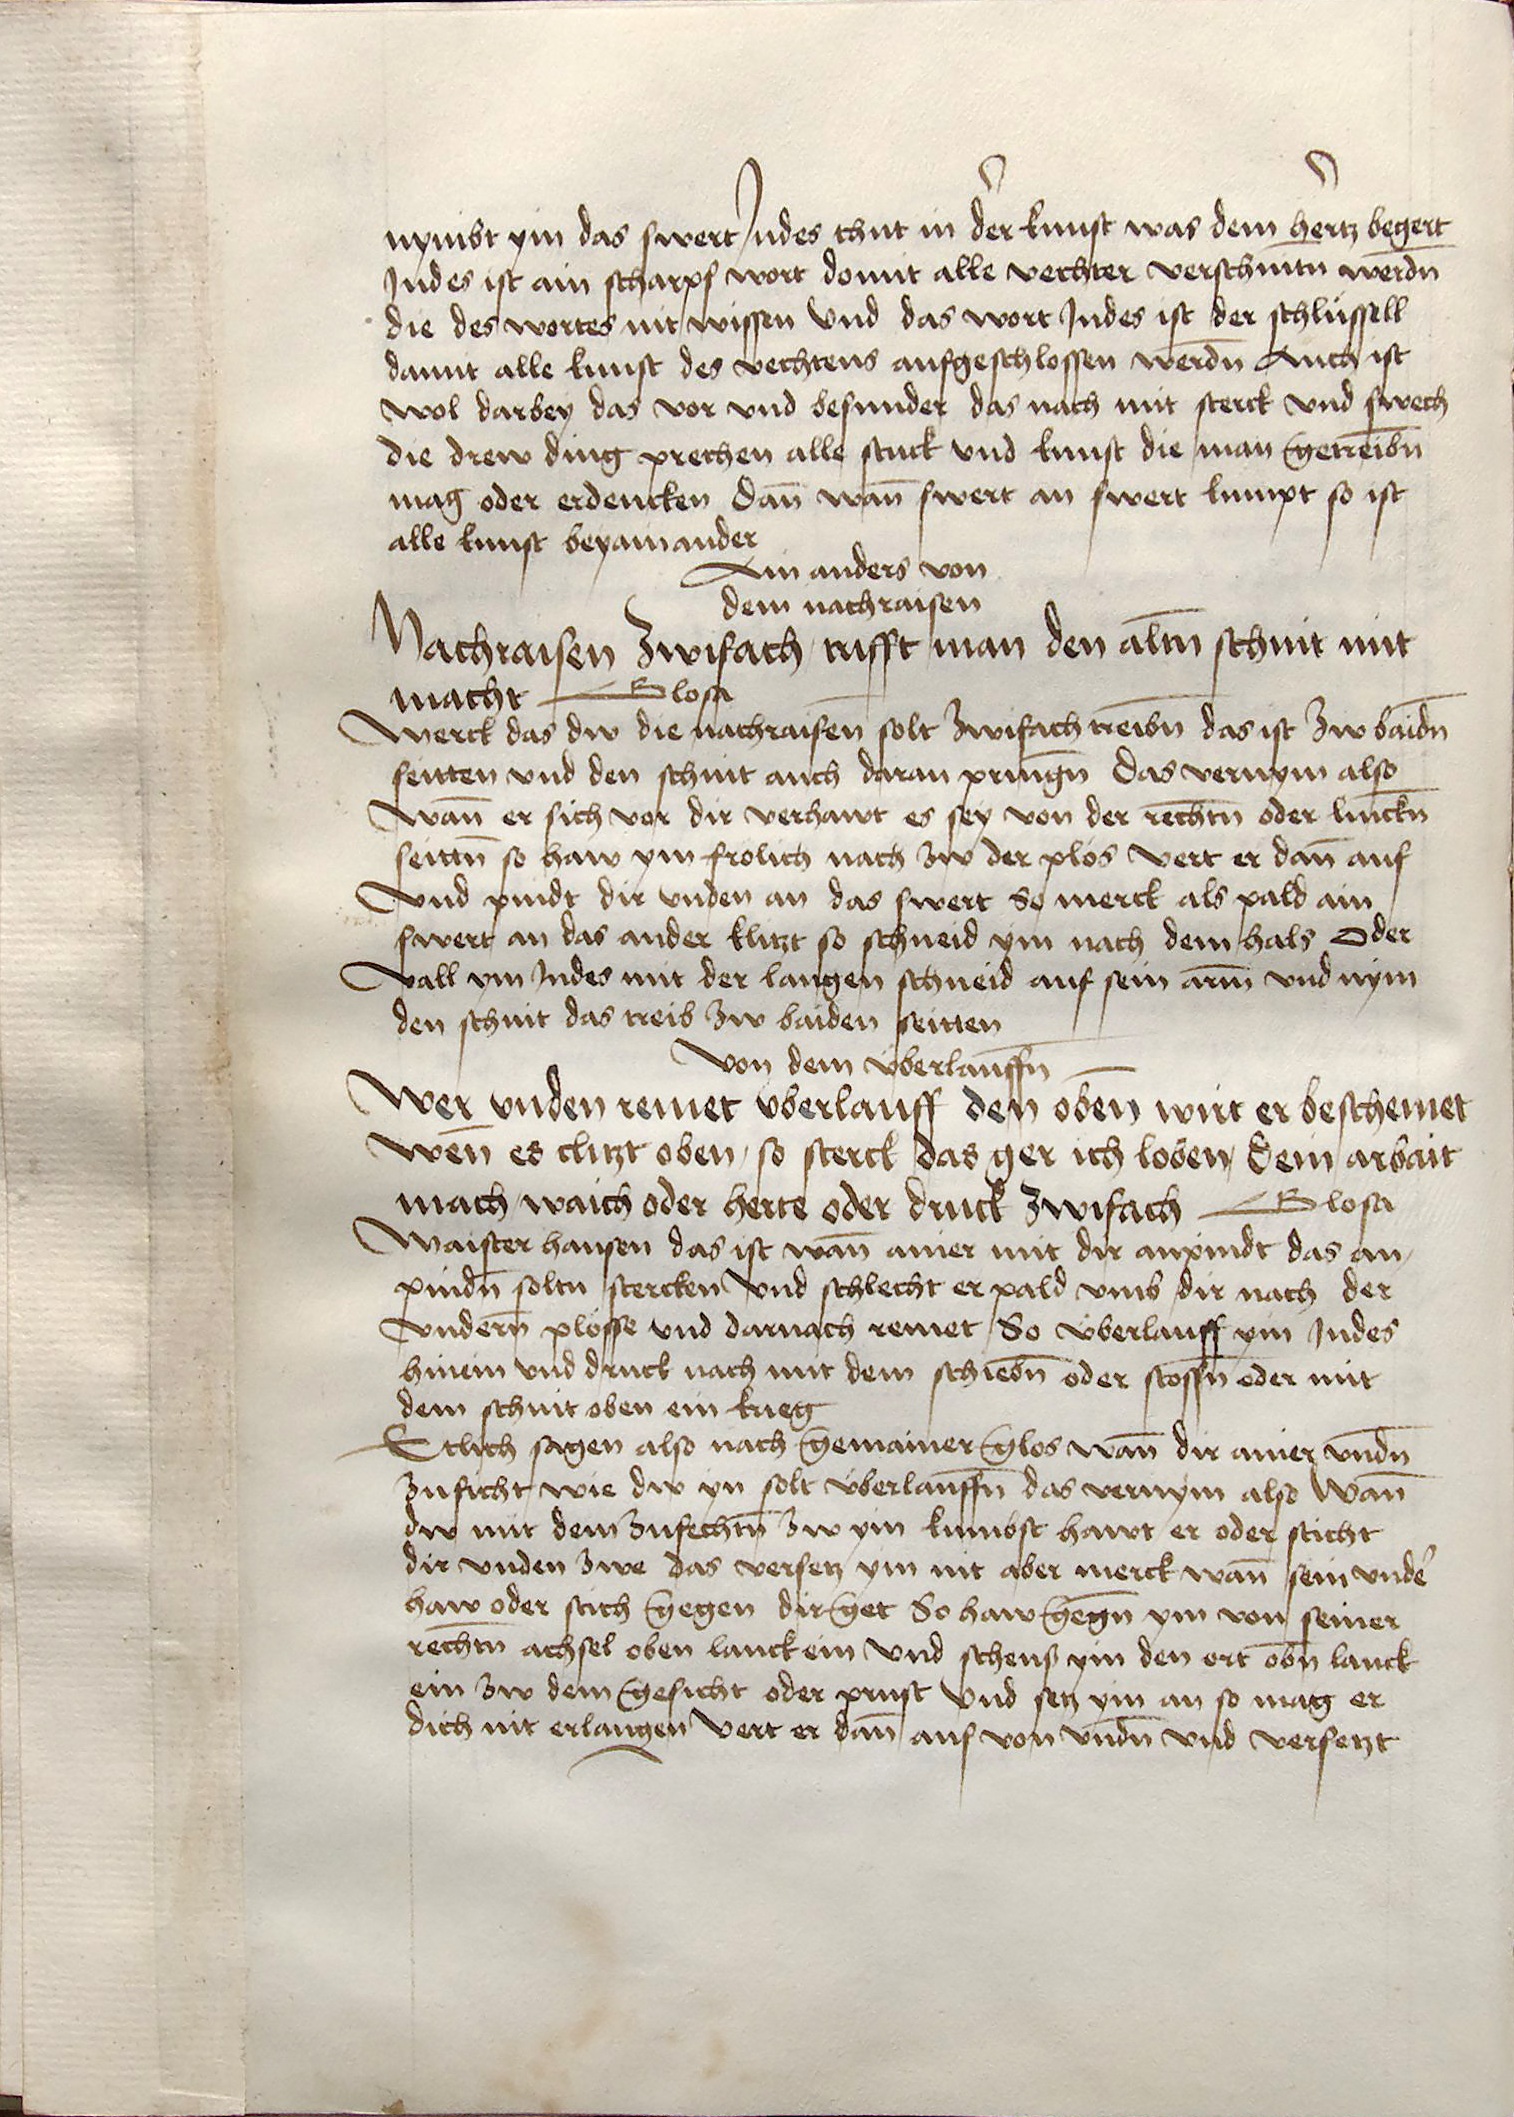 nymbt ym das swert Jndes thut in der kunst was dem hertz begert
Jndes ist ain scharpf wort domit alle vechter verschnitn werdn̄
die des wortes nit wissen Vnd das wort Jndes ist der schlüssell
damit alle kunst des vechtens aufgeschlossen werdn̄ Auch ist
wol darbey das vor vnd besunder das nach mit sterck vnd swech
die drew ding prechen alle stuck vnd kunst die man getreibn̄
mag oder erdencken Dan̄ wan̄ swert an swert kumpt so ist
alle kunst beyainander
Ain anders von
dem nachraisen
Nachraisen Zwifach trifft man den altn̄ schnit mit
macht Glosa
Merck das dw die nachraisen̄ solt Zwifach treibn̄ das ist Zw baidn̄
seitten vnd den schnit auch daran pringn̄ Das vernym also
Wan̄ er sich vor dir verhawt es sey von der rechtn̄ oder linckn̄
seittn̄ so haw ym frolich nach zw der plös Vert er dan̄ auf
Vnd pindt dir vnden an das swert So merck als pald ain
swert an das ander klitzt so schneid ym nach dem hals Oder
Vall ym Jndes mit der langen schneid auf sein arm̄ vnd nym
den schnit das treib Zw baiden seitten
Von dem überlauffn̄
Wer vnden remet vberlauff den oben̄ wirt er beschemet
wen̄ es clitzt oben / so sterck das ger ich loben / Dein arbait
mach waich oder herte oder druck Zwifach Glosa
Maister hansen das ist wan̄ ainer mit dir anpindt das an
pindn̄ soltu stercken Vnd schlecht er pald vmb dir nach der
Vndern̄ plösse vnd darnach remet So überlauff ym Jndes
hinein vnd druck nach mit dem schiebn̄ oder stossn̄ oder mit
dem schnit oben ein krieg
Etlich sagen also nach gemainer glos wan̄ dir ainer vndn̄
zuficht wie dw yn solt überlauffn̄ das vernym also Wan̄
dw mit dem Zufechtn̄ Zw ym kumbst hawt er oder sticht
dir vnden zwe das versetz ym nit aber merck wan̄ sein vnde͛
haw oder stich gegen dir get So haw gegn̄ ym von seiner
rechtn̄ achsel oben lanck ein Vnd scheuß ym den ort obn̄ lanck
ein Zw dem gesicht oder prust Vnd setz ym an so mag er
dich nit erlangen Vert er dan̄ auf von vndn̄ vnd versetzt